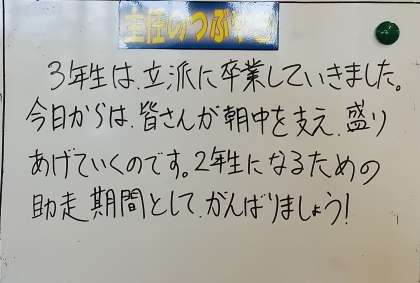 主任のつぶやき
3年生は、立派に卒業していきました。
今日からは、皆さんが朝中を支え、盛り
あげていくのです。2年生になるための
助走期間として、がんばりましょう!